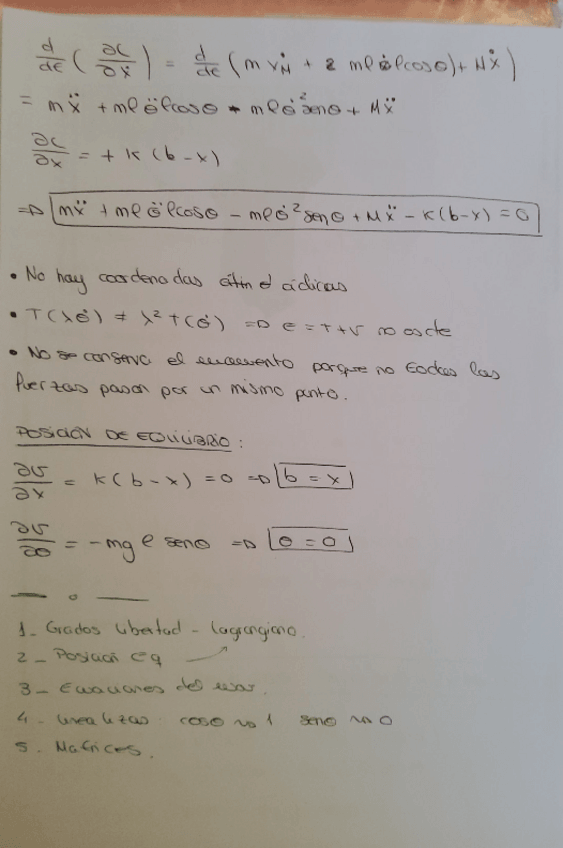 d/dt (∂L/∂ẋ) = d/dt (m v_M + 2 mℓ θ̇ ℓ cosθ) + Mẋ)
= mẍ + mℓ θ̈ ℓcosθ - mℓ θ̇² senθ + Mẍ
∂L/∂x = + K (b - x)
⇒ mẍ + mℓ θ̈ ℓcosθ - mℓ θ̇² senθ + Mẍ - K(b-x) = 0
• No hay coordenadas cíclicas
• T(λθ̇) ≠ λ² T(θ̇) ⇒ E = T+V no es cte
• No se conserva el momento porque no todas las
fuerzas pasan por un mismo punto.
POSICIÓN DE EQUILIBRIO :
∂U/∂x = K(b - x) = 0 ⇒ b = x
∂U/∂θ = -mg ℓ senθ ⇒ θ = 0
1- Grados libertad - Lagrangiano.
2- Posición eq
3- Ecuaciones del
4- linealizas cosθ ~ 1 senθ ~ 0
5. Matrices.